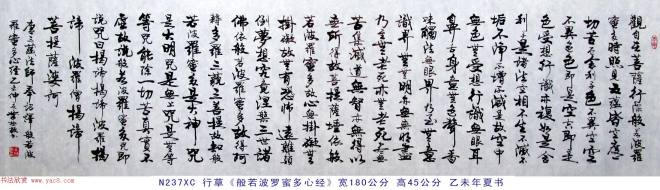 觀自在菩薩行深般若波羅
蜜多時照見五蘊皆空度一
切苦厄舍利子色不異空空
不異色色即是空空即是
色受想行識亦復如是舍
利子是諸法空相不生不滅不
垢不淨不增不減是故空中
無色無受想行識無眼耳
鼻舌身意無色聲香
味觸法無眼界乃至無意
識界無無明亦無無明盡
乃至無老死亦無老死盡無
苦集滅道無智亦無得以無
所得故菩提薩埵依般
若波羅蜜多故心無掛礙無
掛礙故無有恐怖遠離顛
倒夢想究竟涅槃三世諸
佛依般若波羅蜜多故得阿
耨多羅三藐三菩提故知般
若波羅蜜多是大神咒
是大明咒是無上咒是無等
等咒能除一切苦真實不
虛故說般若波羅蜜多咒即
說咒曰揭諦揭諦波羅揭
諦波羅僧揭諦
菩提薩婆訶
唐三藏法師奉詔譯般若波
羅蜜多心經
N237XC 行草《般若波罗蜜多心经》宽180公分 高45公分 乙未年夏书